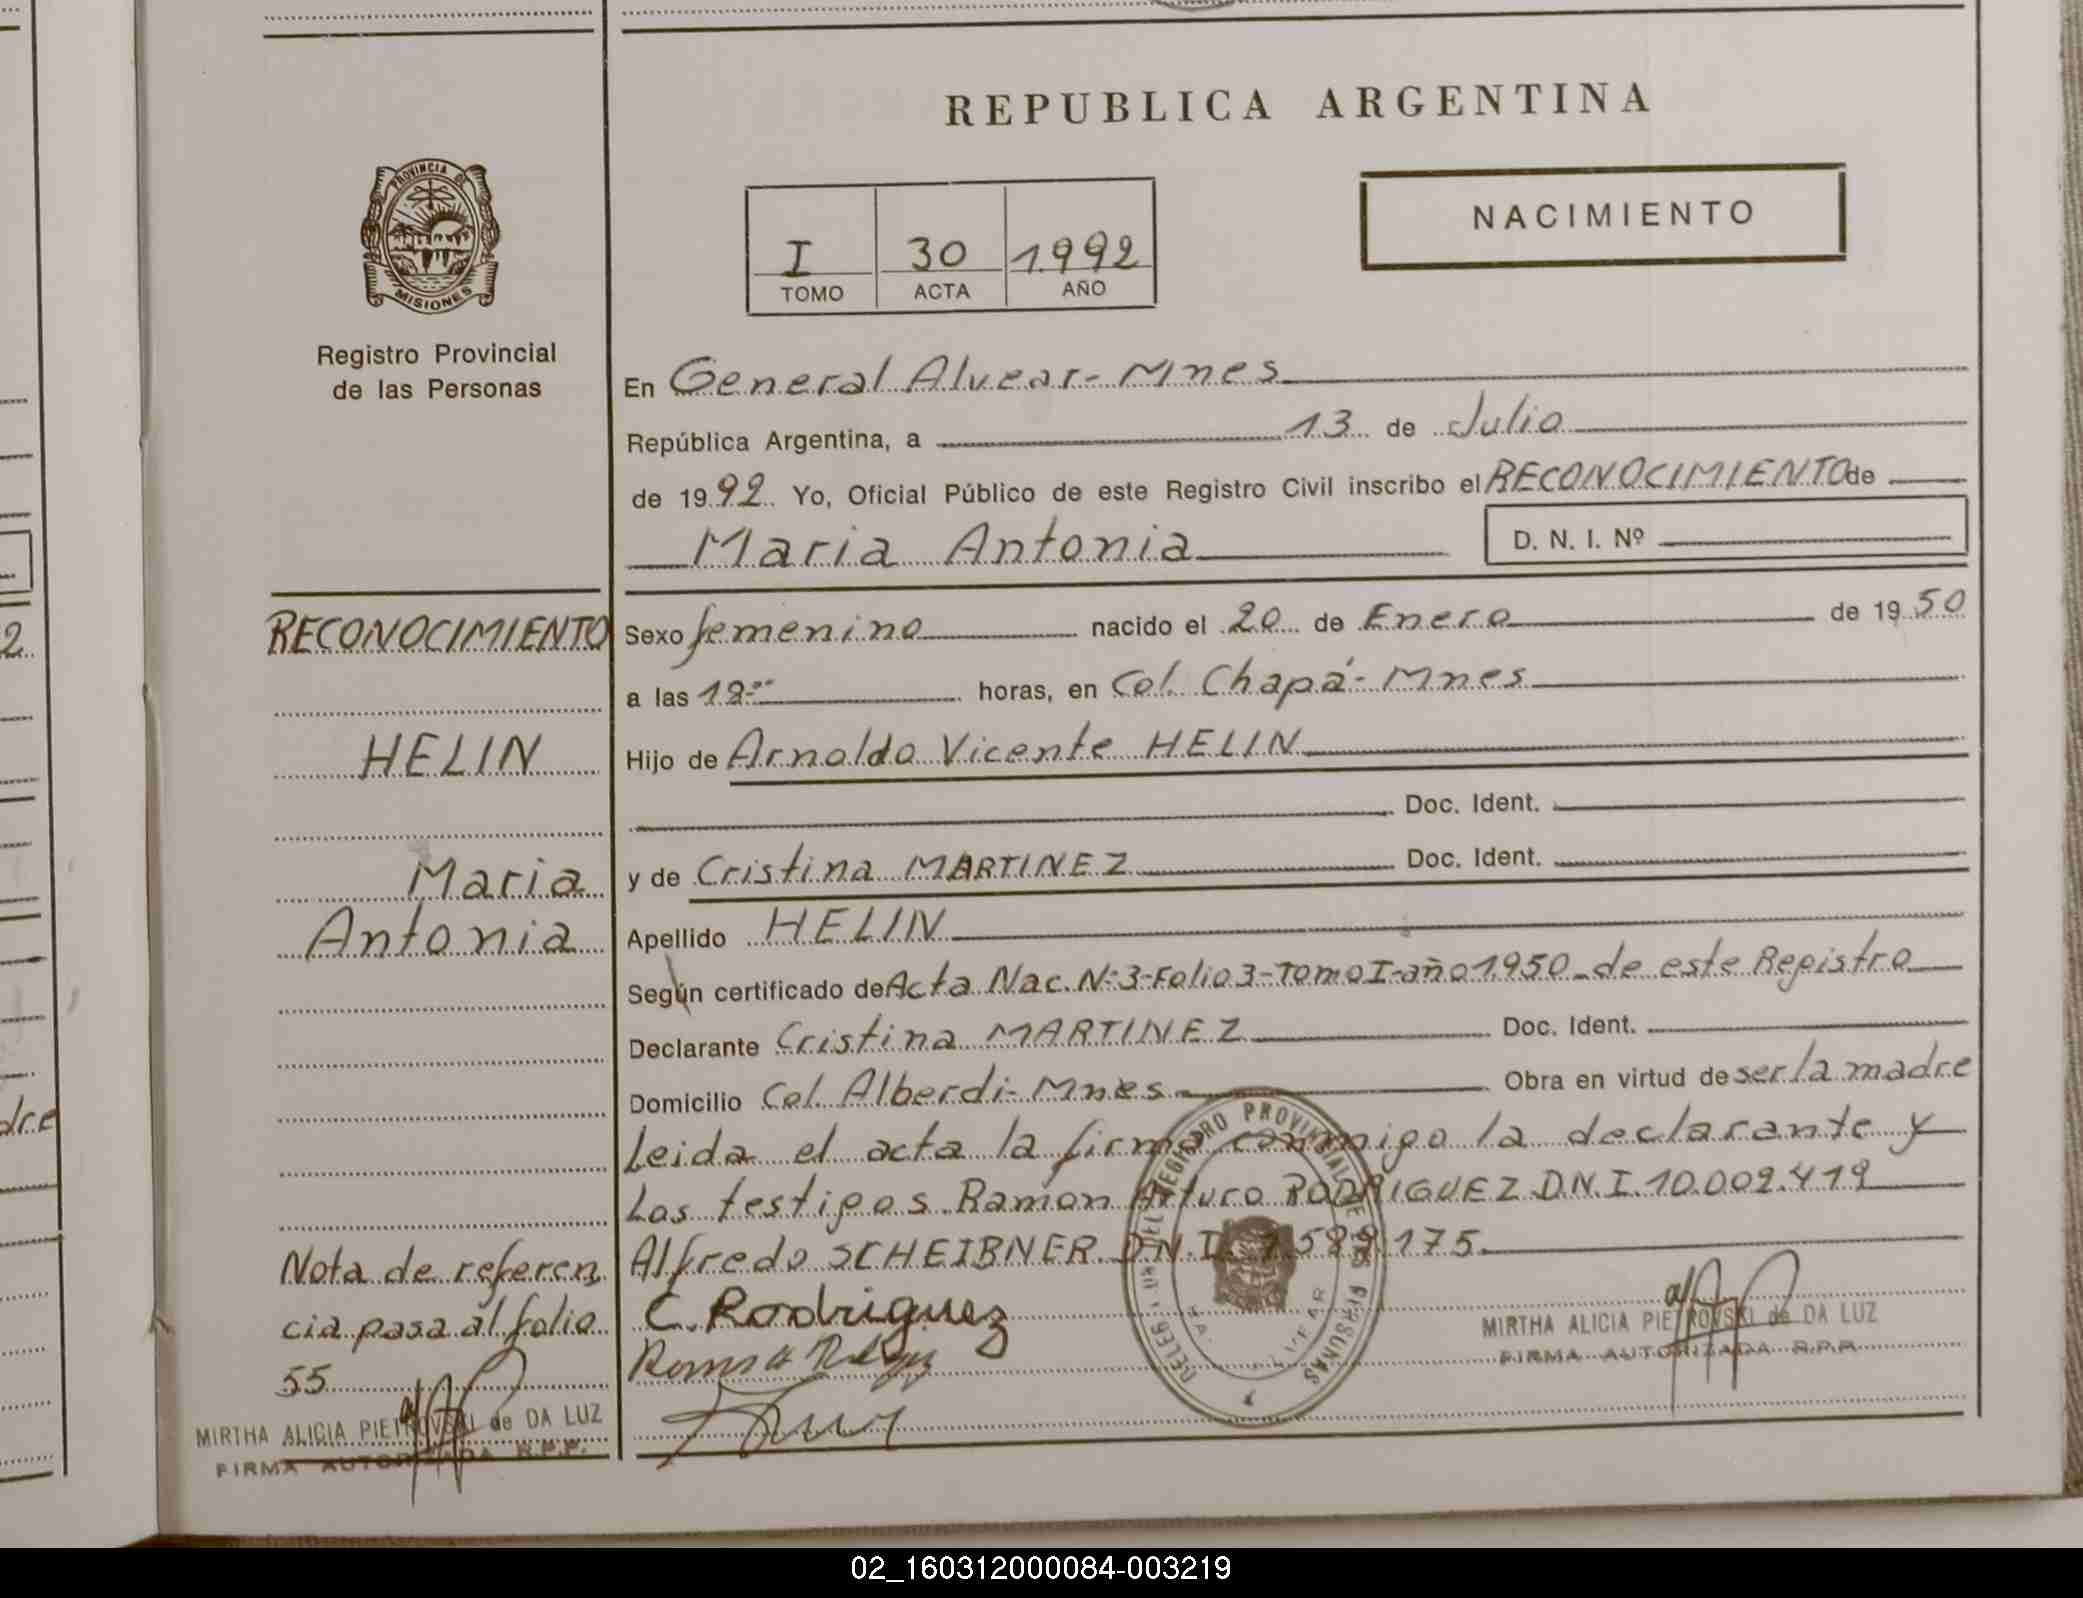 REPUBLICA ARGENTINA
PROVINCIA DE
MISIONES
Registro Provincial
de las Personas
I 30 1992
TOMO ACTA AÑO
NACIMIENTO
En General Alvear - Mnes
República Argentina, a 13 de Julio
de 19 92 Yo, Oficial Público de este Registro Civil inscribo el RECONOCIMIENTO de
Maria Antonia D. N. I. Nº
RECONOCIMIENTO
HELIN
Maria
Antonia
Sexo femenino nacido el 20 de Enero de 19 50
a las horas, en Col. Chapá - Mnes
Hijo de Arnoldo Vicente HELIN
Doc. Ident.
y de Cristina MARTINEZ Doc. Ident.
Apellido HELIN
Según certificado de Acta Nac. Nº 3 - Folio 3 - Tomo I - año 1950 de este Registro
Declarante Cristina MARTINEZ Doc. Ident.
Domicilio Col. Alberdi - Mnes Obra en virtud de ser la madre
Leida el acta la firma conmigo la declarante y
Los testigos Ramón Arturo RODRIGUEZ D.N.I. 10.002.419
Alfredo SCHEIBNER D.N.I. 175
C. Rodriguez
Nota de referen
cia pasa al folio
55
MIRTHA ALICIA PIETROVSKI de DA LUZ
FIRMA AUTORIZADA R.P.P.
MIRTHA ALICIA PIETROVSKI de DA LUZ
FIRMA AUTORIZADA R.P.P.
REGISTRO PROVINCIAL DE LAS PERSONAS
dre
02_160312000084-003219